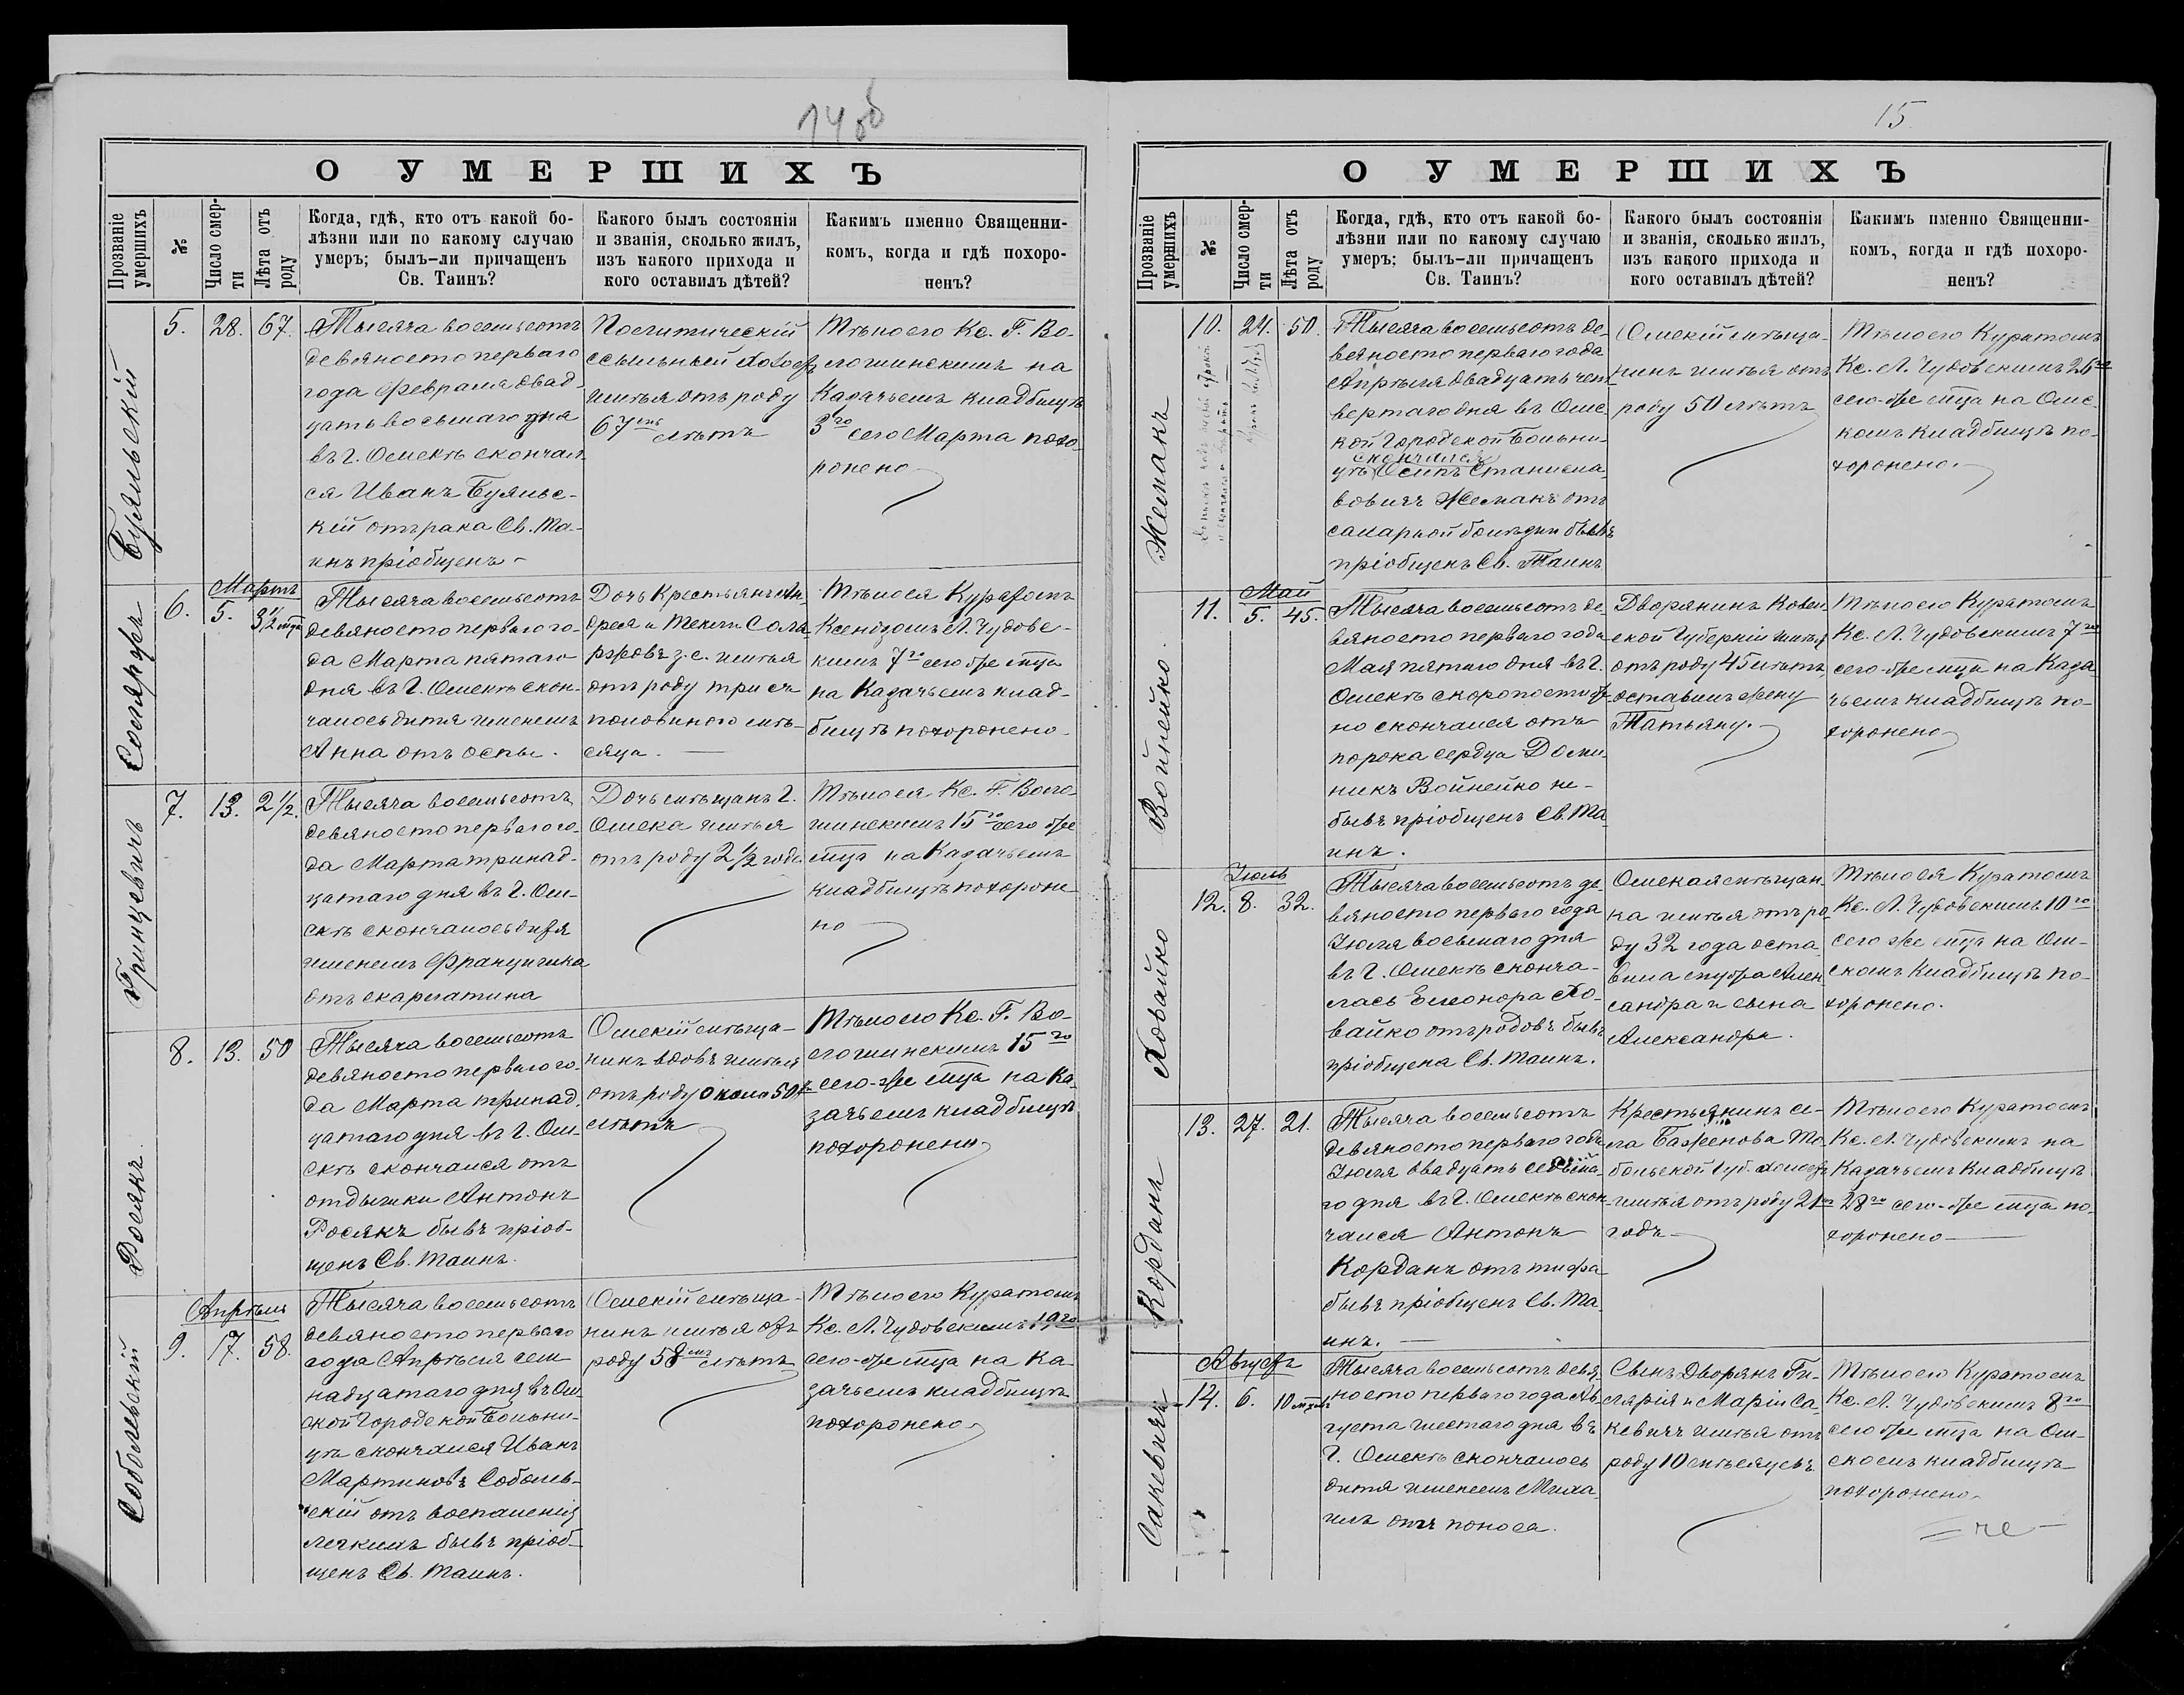 14 об
О УМЕРШИХЪ
Прозваніе умершихъ
№
Число смер-
ти
Лѣта отъ
роду
Когда, гдѣ, кто отъ какой бо-
лѣзни или по какому случаю
умеръ; былъ-ли причащенъ
Св. Таинъ?
Какого былъ состоянія
и званія, сколько жилъ,
изъ какого прихода и
кого оставилъ дѣтей?
Какимъ именно Священни-
комъ, когда и гдѣ похоро-
ненъ?
Буяльскій
5.
28.
67.
Тысяча восемьсотъ
девяносто перваго
года Февраля двад-
цать восьмаго дня
въ г. Омскѣ скончал-
ся Иванъ Буяльс-
кій отъ рака Св. Та-
инъ пріобщенъ
Политическій
ссыльный холостъ
имѣя отъ роду
67 лѣтъ
Тѣло его Кс. Г. Во-
логинскимъ на
Казачьемъ кладбищѣ
3го сего Марта похо-
ронено
Мартъ
6.
5.
3 1/2 мца
Тысяча восемьсотъ
девяносто перваго го-
да Марта пятаго
дня въ г. Омскѣ скон-
чалось дитя именемъ
Анна отъ оспы.
Дочь Крестьянъ Ан-
дрея и Текли
з.с. имѣя
отъ роду три съ
половиною мѣ-
сяца.
Тѣло ея Куратомъ
Ксендзомъ Л. Чудовс-
кимъ 7го сего же мца
на Казачьемъ клад-
бищѣ похоронено
Гринцевичъ
7.
13.
2 1/2.
Тысяча восемьсотъ
девяносто перваго го-
да Марта тринад-
цатаго дня въ г. Ом-
скѣ скончалось дитя
именемъ Францишка
отъ скарлатина
Дочь мѣщанъ г.
Омска имѣя
отъ роду 2 1/2 года
Тѣло ея Кс. Г. Воло-
гинскимъ 15го сего же
мца на Казачьемъ
кладбищѣ похороне
но
Росякъ
8.
13.
50
Тысяча восемьсотъ
девяносто перваго го-
да Марта тринад-
цатаго дня въ г. Ом-
скѣ скончался отъ
отдышки Антонъ
Росякъ бывъ пріоб-
щенъ Св. Таинъ.
Омскій мѣща-
нинъ вдовъ имѣя
отъ роду около 50
лѣтъ
Тѣло его Кс. Г. Во-
логинскимъ 15го
сего-же мца на Ка-
зачьемъ кладбищѣ
похоронено
Соболевскій
Апрѣль
9.
17.
58.
Тысяча восемьсотъ
девяносто перваго
года Апрѣля сем-
надцатаго дня въ Ом-
ской Городской Больни-
цѣ скончался Иванъ
Мартиновъ Соболев-
скій отъ воспаленія
легкихъ бывъ пріоб-
щенъ Св. Таинъ.
Омскій мѣща-
нинъ имѣя отъ
роду 58 лѣтъ
Тѣло его Куратомъ
Кс. Л. Чудовскимъ 19го
сего-же мца на Ка-
зачьемъ кладбищѣ
похоронено
15
О УМЕРШИХЪ
Прозваніе умершихъ
№
Число смер-
ти
Лѣта отъ
роду
Когда, гдѣ, кто отъ какой бо-
лѣзни или по какому случаю
умеръ; былъ-ли причащенъ
Св. Таинъ?
Какого былъ состоянія
и званія, сколько жилъ,
изъ какого прихода и
кого оставилъ дѣтей?
Какимъ именно Священни-
комъ, когда и гдѣ похоро-
ненъ?
Жемакъ
10.
24.
50.
Тысяча восемьсотъ де-
вяносто перваго года
Апрѣля двадцать чет-
вертаго дня въ Омс-
кой Городской Больни-
скончался
цѣ Осипъ Станисла-
вовичъ Жемакъ отъ
болѣзни бывъ
пріобщенъ Св. Таинъ
Омскій мѣща-
нинъ имѣя отъ
роду 50 лѣтъ
Тѣло его Куратомъ
Кс. Л. Чудовскимъ 26го
сего-же мца на Омс-
комъ кладбищѣ по-
хоронено.
Войнейко.
Май
11.
5.
45.
Тысяча восемьсотъ де-
вяносто перваго года
Мая пятаго дня въ г.
Омскѣ скоропостиж-
но скончался отъ
порока сердца Доми-
никъ Войнейко не-
бывъ пріобщенъ Св. Та-
инъ.
Дворянинъ Ковен-
ской Губерніи имѣя
отъ роду 45 лѣтъ,
оставилъ жену
Татьяну.
Тѣло его Куратомъ
Кс. Л. Чудовскимъ 7го
сего-же мца на Каза-
чьемъ кладбищѣ по-
хоронено
Ховайко
Іюль
12.
8.
32.
Тысяча восемьсотъ де-
вяносто перваго года
Іюля восьмаго дня
въ г. Омскѣ сконча-
лась Елеонора Хо-
вайко отъ родовъ бывъ
пріобщена Св. Таинъ.
Омская мѣщан-
ка имѣя отъ ро-
ду 32 года оста-
вила мужа Алек-
сандра и сына
Александра.
Тѣло ея Куратомъ
Кс. Л. Чудовскимъ 10го
сего же мца на Ом-
скомъ Кладбищѣ по-
хоронено.
Корданъ
13.
27.
21.
Тысяча восемьсотъ
девяносто перваго года
Іюля двадцать седьма-
го дня въ г. Омскѣ скон-
чался Антонъ
Корданъ отъ тифа
бывъ пріобщенъ Св. Та-
инъ.
Крестьянинъ се-
ла Баженова То-
больской Губ. холостъ
имѣя отъ роду 21
годъ
Тѣло его Куратомъ
Кс. Л. Чудовскимъ на
Казачьемъ Кладбищѣ
28го сего-же мца по-
хоронено
Сакевичъ
Августъ
14.
6.
10 мцевъ
Тысяча восемьсотъ девя-
носто перваго года Ав-
густа шестаго дня въ
г. Омскѣ скончалось
дитя именемъ Миха-
илъ отъ поноса.
Сынъ Дворянъ Ги-
лярія и Маріи Са-
кевичъ имѣя отъ
роду 10 мѣсяцевъ.
Тѣло его Куратомъ
Кс. Л. Чудовскимъ 8го
сего же мца на Ом-
скомъ кладбищѣ
похоронено.